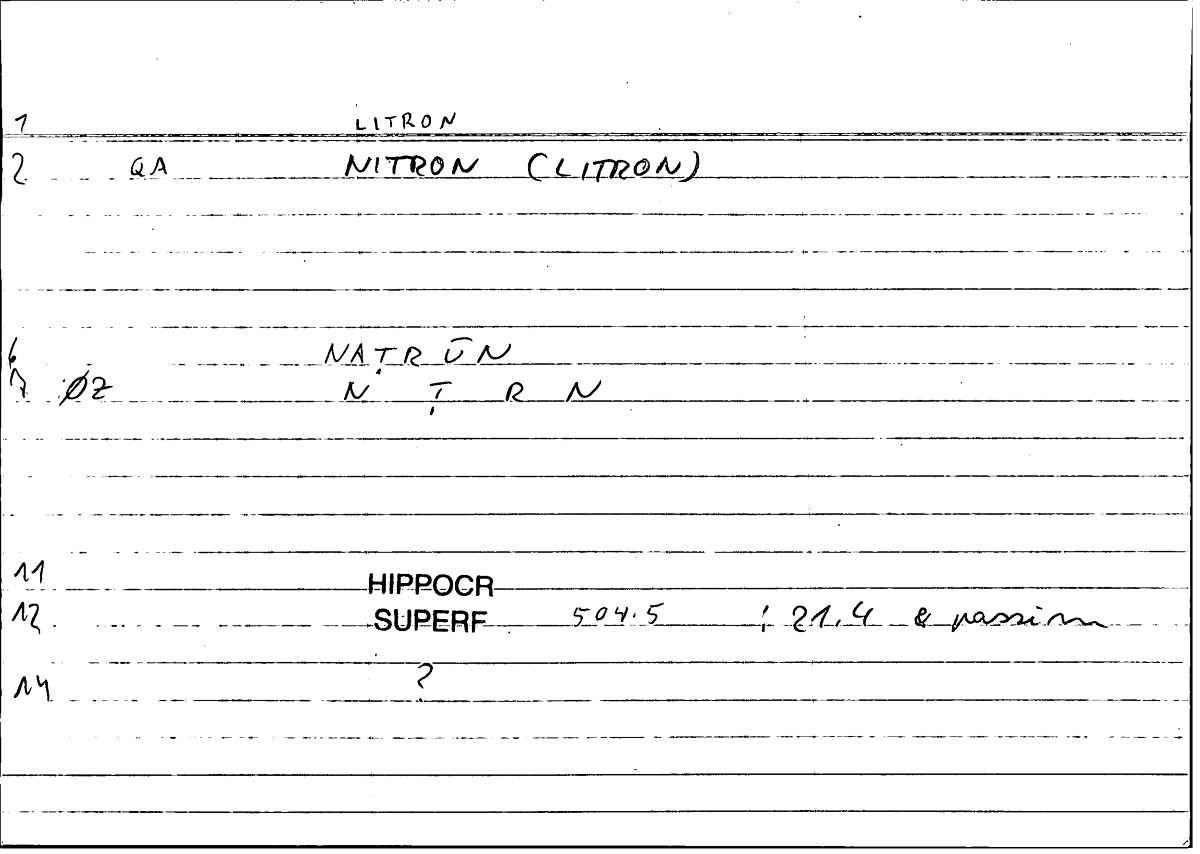 1 LITRON
2 QA NITRON (LITRON)
6 NAṬRŪN
7 ØZ N Ṭ R N
11 HIPPOCR
12 SUPERF 504.5 ; 21.4 & passim
14 ?